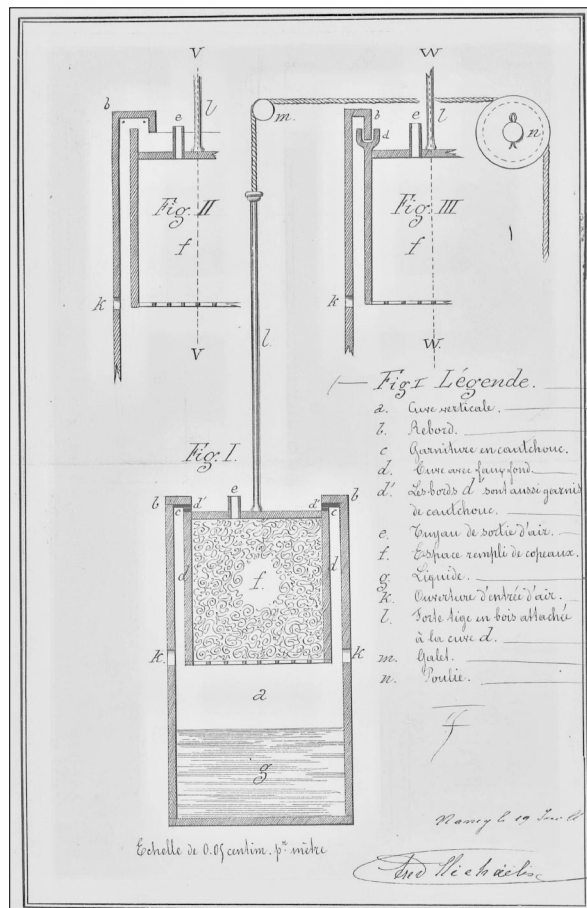 V
W
b
e
l
m.
b
e
l
d
n
Fig. II
Fig. III
f
f
k
k
V
W.
l.
Fig. I Légende.
a. Cuve verticale.
b. Rebord.
c Garniture en caoutchouc.
d. Cuve avec faux fond.
d'. Les bords d sont aussi garnis
de caoutchouc.
e. Tuyau de sortie d'air.
f. Espace rempli de copeaux.
g. Liquide.
k. Ouverture d'entrée d'air.
l. Forte tige en bois attachée
à la cuve d.
m. Galet.
n. Poulie.
Fig. I.
b
c
d'
e
d'
c
b
d
f
d
k.
k
a
g
Nancy le 19
Echelle de 0.05 centim. pr. mètre
Fred Michaëlis